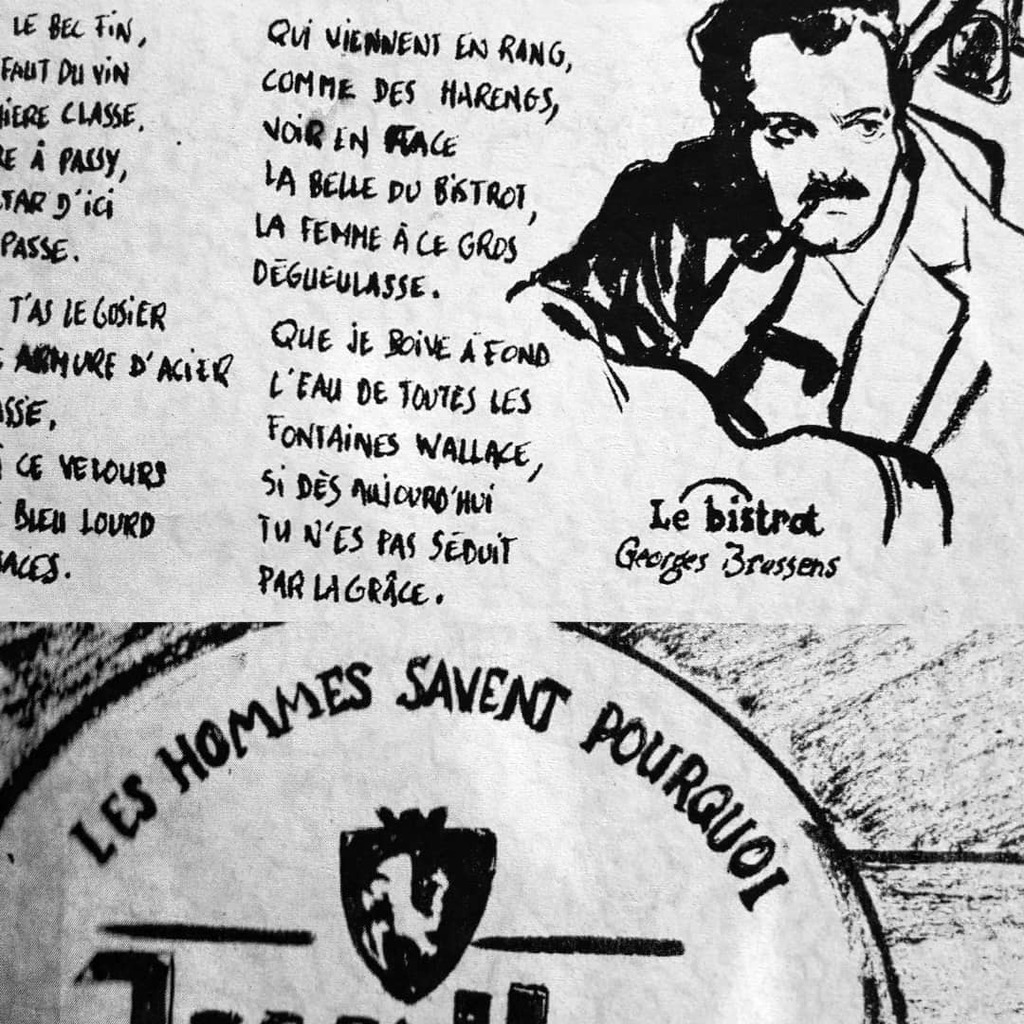 LE BEC FIN,
FAUT DU VIN
CLASSE.
À PASSY,
D'ICI
PASSE.
T'AS LE GOSIER
ARMURE D'ACIER
CE VELOURS
BLEU LOURD
QUI VIENNENT EN RANG,
COMME DES HARENGS,
VOIR EN FACE
LA BELLE DU BISTROT,
LA FEMME À CE GROS
DÉGUEULASSE.
QUE JE BOIVE À FOND
L'EAU DE TOUTES LES
FONTAINES WALLACE,
SI DÈS AUJOURD'HUI
TU N'ES PAS SÉDUIT
PAR LA GRÂCE.
Le bistrot
Georges Brassens
LES HOMMES SAVENT POURQUOI